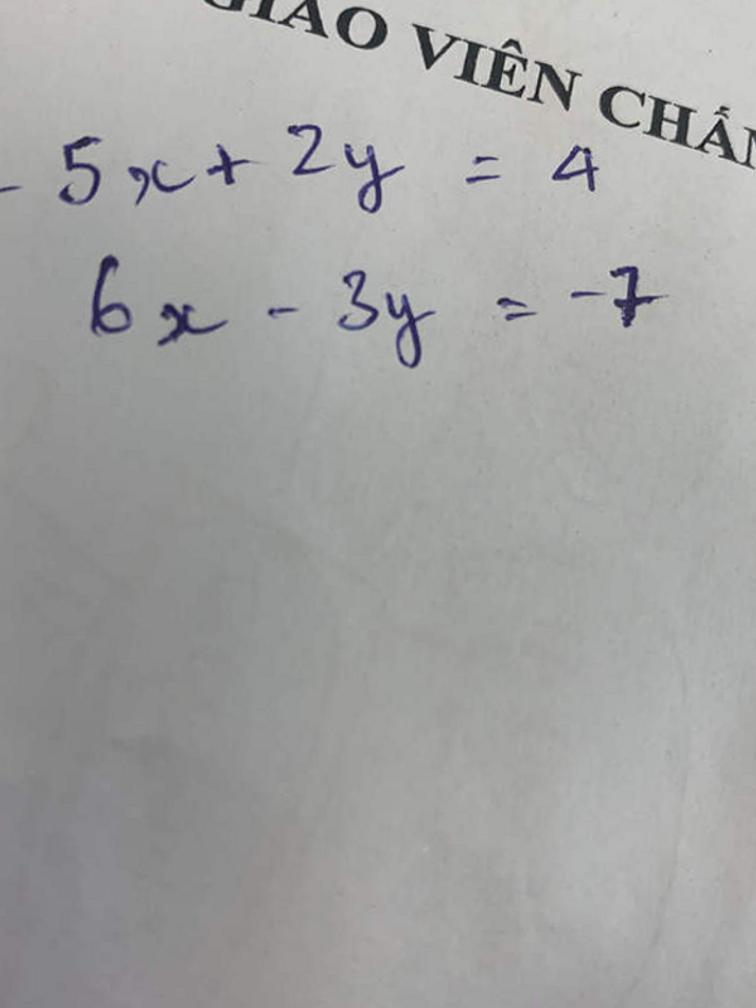 GIÁO VIÊN CHẤM
- 5x + 2y = 4
6x - 3y = -7